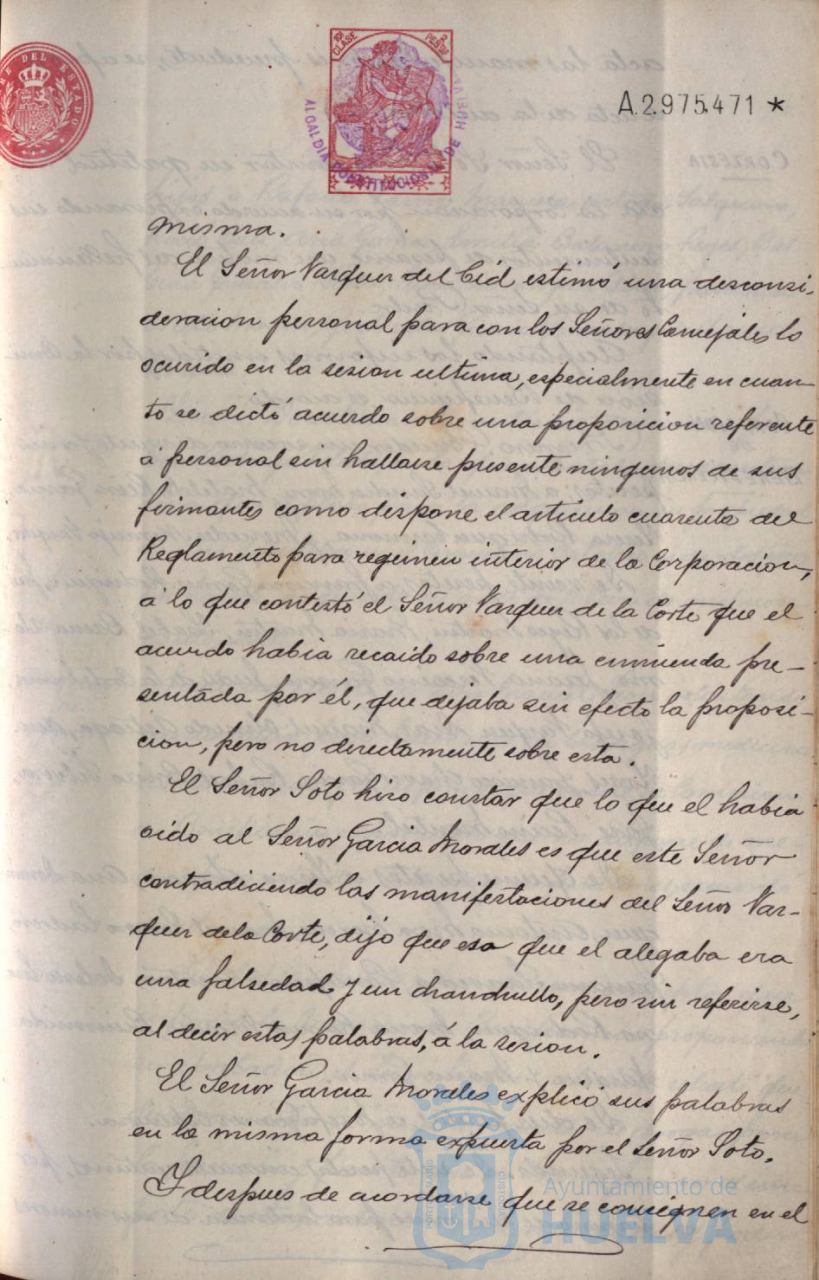 DEL ESTADO
10ª CLASE
2 PESETAS
ALCALDIA CONSTITUCIONAL DE HUELVA
A.2.975.471 *
misma.
El Señor Vazquez del Cid estimó una desconsi-
deracion personal para con los Señores Concejales lo
ocurido en la sesion ultima, especialmente en cuan-
to se dictó acuerdo sobre una proposicion referente
á personal sin hallarse presente ningunos de sus
firmantes como dispone el articulo cuarenta del
Reglamento para regimen interior de la Corporacion,
á lo que contestó el Señor Vazquez de la Corte que el
acuerdo habia recaido sobre una enmienda pre-
sentada por él, que dejaba sin efecto la proposi-
cion, pero no directamente sobre esta.
El Señor Soto hizo constar que lo que el habia
oido al Señor Garcia Morales es que este Señor
contradiciendo las manifestaciones del Señor Vaz-
quez de la Corte, dijo que eso que el alegaba era
una falsedad y un chanchullo, pero sin referirse,
al decir estas palabras, á la sesion.
El Señor Garcia Morales explicó sus palabras
en la misma forma expuesta por el Señor Soto.
Y despues de acordarse que se consignen en el
Ayuntamiento de
HUELVA